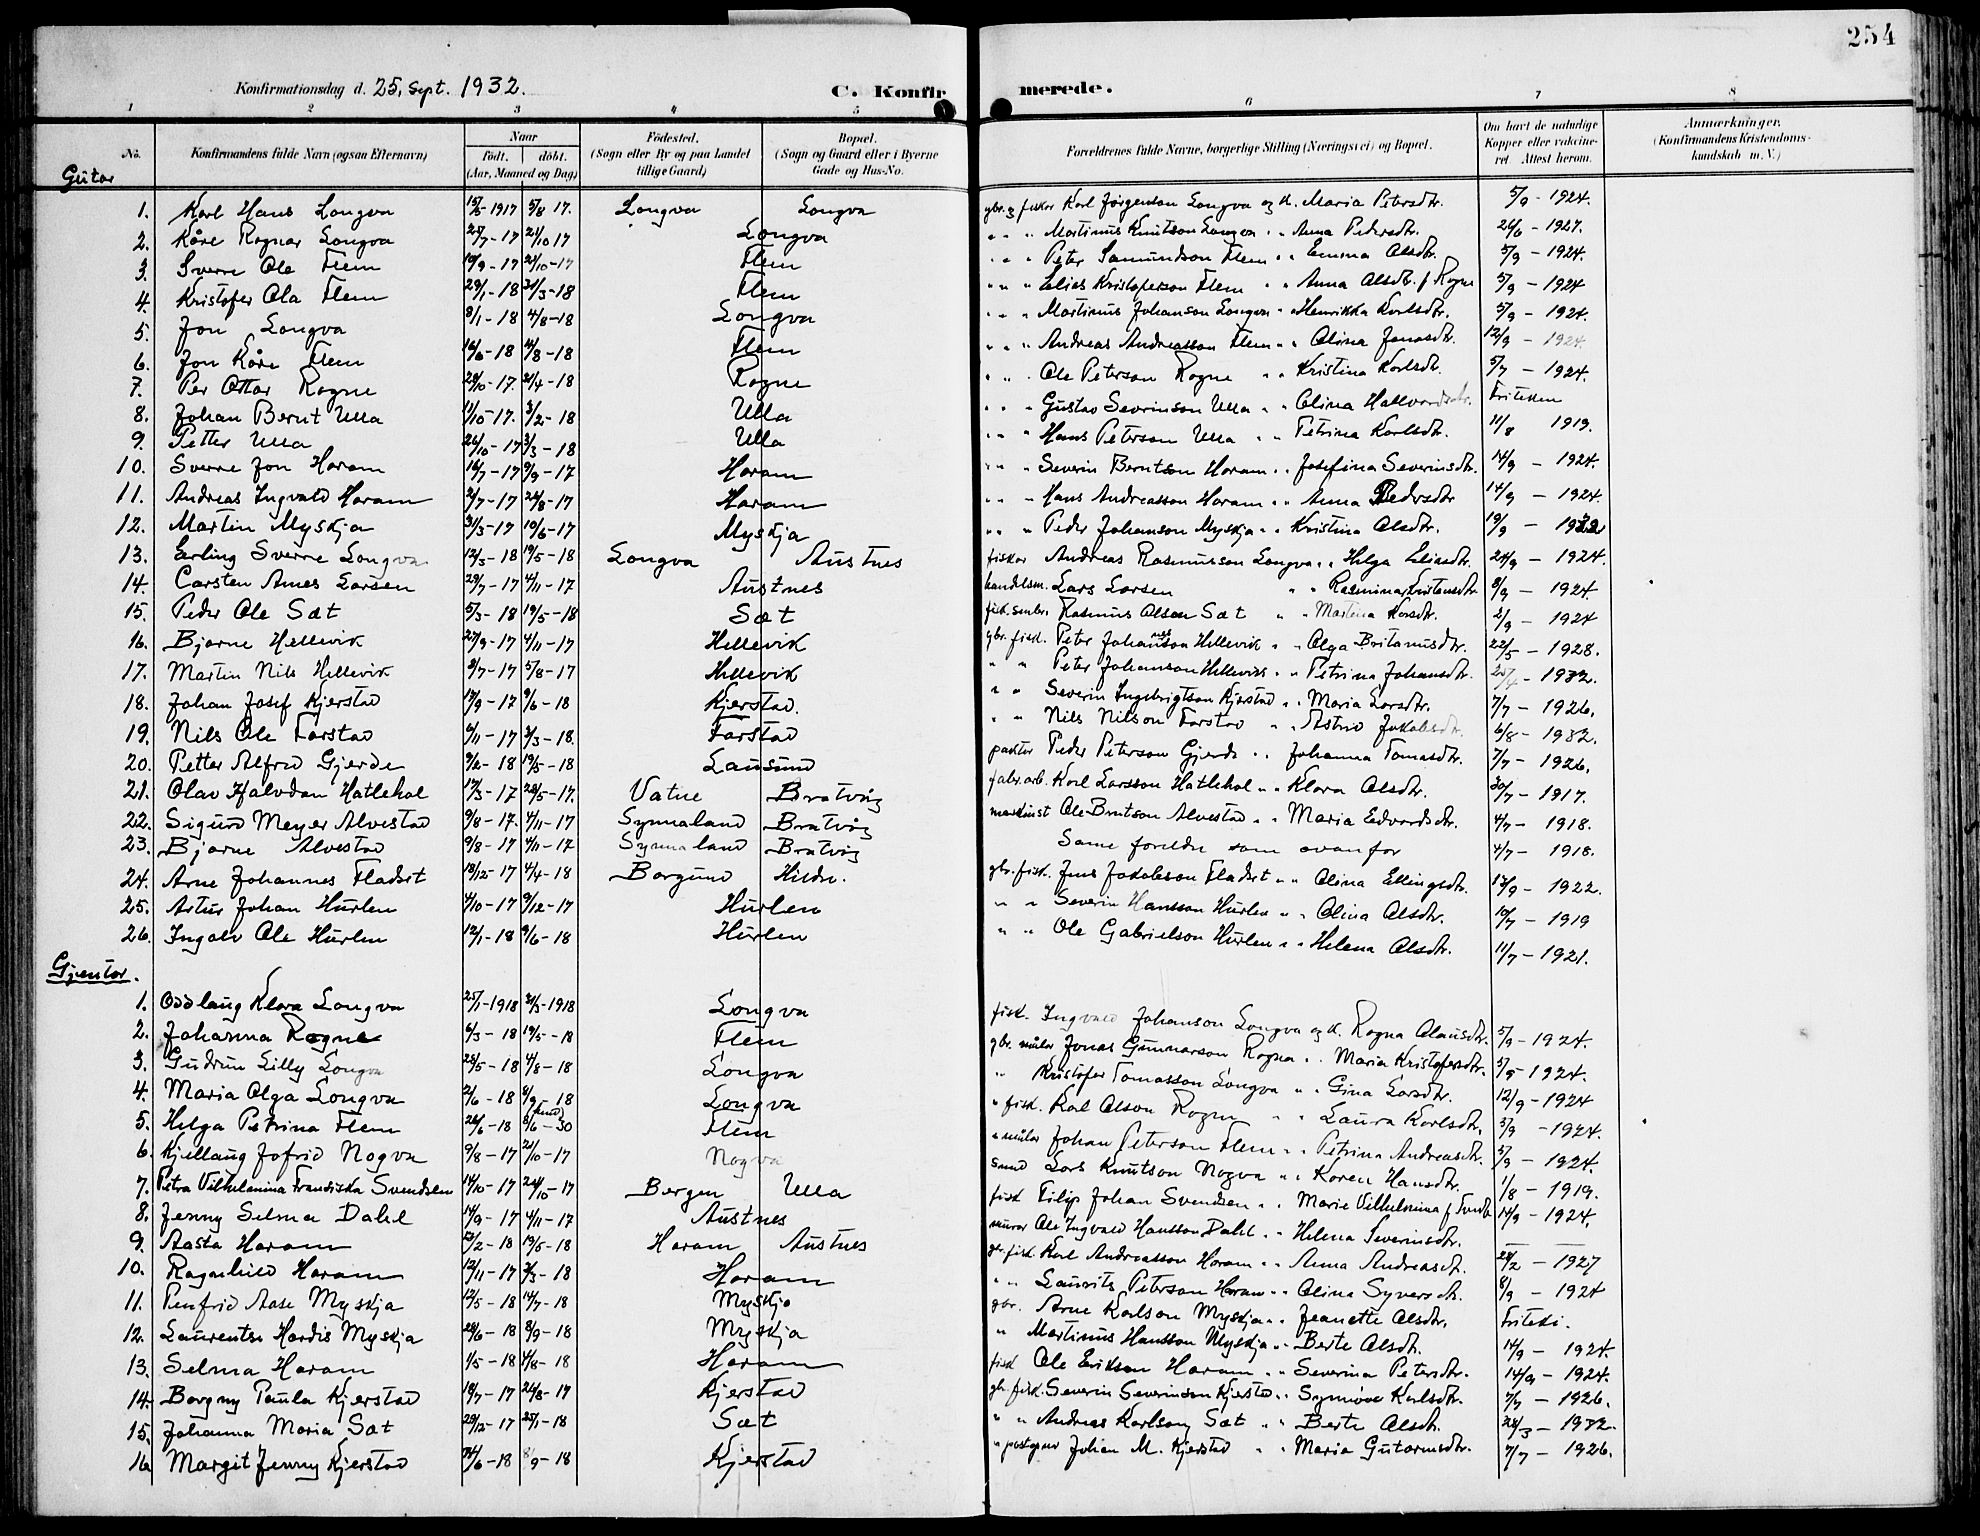 254
Konfirmationsdag d. 25. Sept. 1932. C. Konfir merede.
1 2 3 4 5 6 7 8
No. Konfirmandens fulde Navn (ogsaa Efternavn) Naar født. døbt. (Aar, Maaned og Dag) Fødested. (Sogn eller By og paa Landet tillige Gaard) Bopæl. (Sogn og Gaard eller i Byerne Gade og Hus-No. Forældrenes fulde Navne, borgerlige Stilling (Næringsvei) og Bopæl. Om havt de naturlige Kopper eller vaksineret. Attest herom. Anmærkninger. (Konfirmandens Kristendomskundskab m. V.)
Gutar
1. Karl Hans Longva 15/5-1917 5/8 17. Longva Longva gbr. og fiskar Karl Jørgenson Longva og k. Maria Petersdtr. 5/9 - 1924.
2. Kåre Ragnar Longva 25/7-17 21/10 17 Longva " " " Martinus Knutson Longva " " Anna Pedersdtr. 26/6 - 1927.
3. Sverre Ole Flem 10/9-17 21/10-17 Flem " " " Peter Samundson Flem " " Emma Olsdtr. 5/9 - 1924.
4. Kristofer Ola Flem 29/1-18 31/3-18 Flem " " " Elias Kristoferson Flem " " Anna Olsdtr. f. Rogne 5/9 - 1924
5. Jon Longva 8/1-18 4/8-18 Longva " " " Martinus Johanson Longva " " Henrikka Karlsdtr. 5/9 - 1924.
6. Jon Kåre Flem 16/6-18 4/8-18 Flem " " " Andreas Andreasson Flem " " Olina Jonasdtr. 12/9 - 1924.
7. Per Ottar Rogne 28/10-17. 21/4-18 Rogne " " " Ole Peterson Rogne " " Kristina Karlsdtr. 5/7 - 1924.
8. Johan Bernt Ulla 11/10-17. 3/2-18 Ulla " " " Gustav Severinson Ulla " " Olina Hallvardsdtr. Friteken
9. Petter Ulla 26/10-17 3/3-18 Ulla " " " Hans Peterson Ulla " " Petrina Karlsdtr. 11/8 1919.
10. Sverre Jon Haram 16/7-17 9/9-17 Haram " " " Severin Berntson Haram " " Josefina Severinsdtr. 14/9 - 1924.
11. Andreas Ingvald Haram 2/7-17 26/8-17 Haram " " " Hans Andreasson Haram " " Anna Pedersdtr 14/9 - 1924.
12. Martin Myskja 31/3-17 10/6-17 Myskja " " " Peder Johanson Myskja " " Kristina Olsdtr. 19/9 -
13. Erling Sverre Longva 12/3-18 19/5-18 Longva Austnes fiskar Andreas Rasmusson Longva " " Helga Eliasdtr. 24/9 - 1924.
14. Carsten Arnes Larsen 29/7-17 4/11-17 Austnes handelsm. Lars Larsen " " 8/9 - 1924
15. Peder Ole Sæt 5/3-18 19/5-18 Sæt Rasmus Olsen Sæt " " Martina 2/9 - 1924
16. Bjarne Hellevik 23/9-17 4/11-17 Hellevik gbr. fisk. Peter Hellevik " " Olga Britanusdtr. 22/5 - 1928.
17. Martin Nils Hellevik 8/7-17 5/8-17 Hellevik " " Peter Johanson Hellevik " " Petrina Johansdtr. 25/4 - 1932.
18. Johan Josef Kjerstad 17/9-17 9/6-18 Kjerstad. " " Severin Ingebrigtson Kjerstad " " Maria Larsdtr. 7/7 - 1926.
19. Nils Ole Farstad 4/11-17 3/3-18. Farstad " " Nils Nilson Farstad " " Astrid Jakobsdtr. 6/8 - 1932.
20. Petter Alfred Gjerde 9/2-18 19/5-18 Lausund Peder Peterson Gjerde " " Johanna Tomasdtr. 7/7 - 1926.
21. Olav Halvdan Hatlehol 17/3-17 28/5-17. Vatne Brattvåg fabr.arb. Karl Larsson Hatlehol " " Klara Olsdtr. 30/7 - 1917.
22. Sigurd Meyer Alvestad 9/8-17. 4/11-17 Synnaland Brattvåg maskinist Ole Berntson Alvestad " " Maria Edvardsdtr. 4/7 - 1918.
23. Bjarne Alvestad 9/8-17 4/11-17 Synnaland Brattvåg Same foreldre som ovanfor 4/7 - 1918.
24. Arne Johannes Fladset 18/12-17 4/4-18 Borgund Hildre. gbr. fisk. Jens Jakobson Fladset " " Olina Ellingsdtr. 17/9 - 1922.
25. Artur Johan Hurlen 4/10-17 9/12-17 Hurlen " " Severin Hansson Hurlen " " Olina Olsdtr. 10/7 - 1919
26. Ingolv Ole Hurlen 12/1-18 9/6-18 Hurlen " " Ole Gabrielson Hurlen " " Helena Olsdtr. 11/7 - 1921.
Gjentor.
1. Oddlaug Klara Longva 25/1-1918 31/3-1918 Longva fisk. Ingvald Johanson Longva og k. Ragna Olausdtr. 5/9 - 1924.
2. Johanna Rogne 6/3-18 19/5-18 Flem gbr. målar Jonas Gunnarson Rogne " " Maria Kristofersdtr. 5/9 - 1924.
3. Gudrun Lilly Longva 25/5-18 4/8-18 Longva " Kristofer Tomasson Longva " " Gina Larsdtr. 12/9 - 1924
4. Maria Olga Longva 2/6-18 8/9-18 Longva " fisk. Karl Olson Rogne " " Laura Karlsdtr. 5/9 - 1924.
5. Helga Petrina Flem 26/6-18 8/6-30 Flem " målar Johan Peterson Flem " " Petrina Andreasdtr. 5/9 - 1924.
6. Kjellaug Jofrid Nogva 9/8-17 21/10-17 Nogva smed Lars Knutson Nogva " " Karen Hansdtr. 1/8 - 1919.
7. Petra Vilhelmina Fransiska Svendsen 14/10-17 24/10-17 Bergen Ulla fisk Filip Johan Svendsen " " Marie Vilhelmina f. 14/9 - 1924.
8. Jenny Selma Dahl 14/9-17 4/11-17 Austnes murar Ole Ingvald Hansson Dahl " " Helena Severinsdtr.
9. Aasta Haram 12/2-18 19/5-18 Haram Austnes gbr. fisk. Karl Andreasson Haram " " Anna Andreasdtr. 24/2 - 1927
10. Ragnhild Haram 12/11-17 3/3-18 Haram " " Laurits Peterson Haram " " Olina Syversdtr. 8/9 - 1924
11. Penfrid Aase Myskja 12/5-18 14/7-18 Myskja gbr. Arne Karlson Myskja " " Jeanette Olsdtr. Friteki.
12. Laurentse Hardis Myskja 28/6-18 8/9-18 Myskja " Martinus Hansson Myskja " " Berte Olsdtr. 14/9 - 1924.
13. Selma Haram 1/5-18 4/8-18 Haram fisk Ole Erikson Haram " " Severina Petersdtr. 14/9 - 1924.
14. Borgny Paula Kjerstad 18/7-17 26/8-17 Kjerstad gbr. fisk. Severin Severinson Kjerstad " " Synnøve Karlsdtr. 7/7 - 1926.
15. Johanna Maria Sæt 29/12-17 27/1-18 Sæt " " Andreas Karlson Sæt " " Berte Olsdtr. 28/3 - 1932.
16 Margit Jenny Kjerstad 24/6-18 8/9-18 Kjerstad " Johan M. Kjerstad " " Maria Gutormsdtr. 7/7 - 1926.